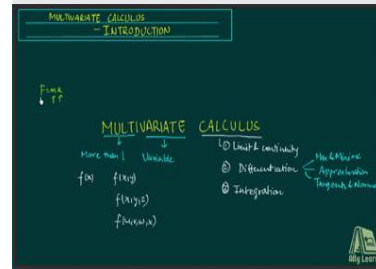 MULTIVARIATE CALCULUS
- INTRODUCTION
F=ma
↑↑
MULTIVARIATE CALCULUS
More than 1 Variable
f(x) f(x,y)
f(x,y,z)
① Limit & continuity
② Differentiation
Max & Minima
Approximation
Tangents & Normal
③ Integration
Ally Learn